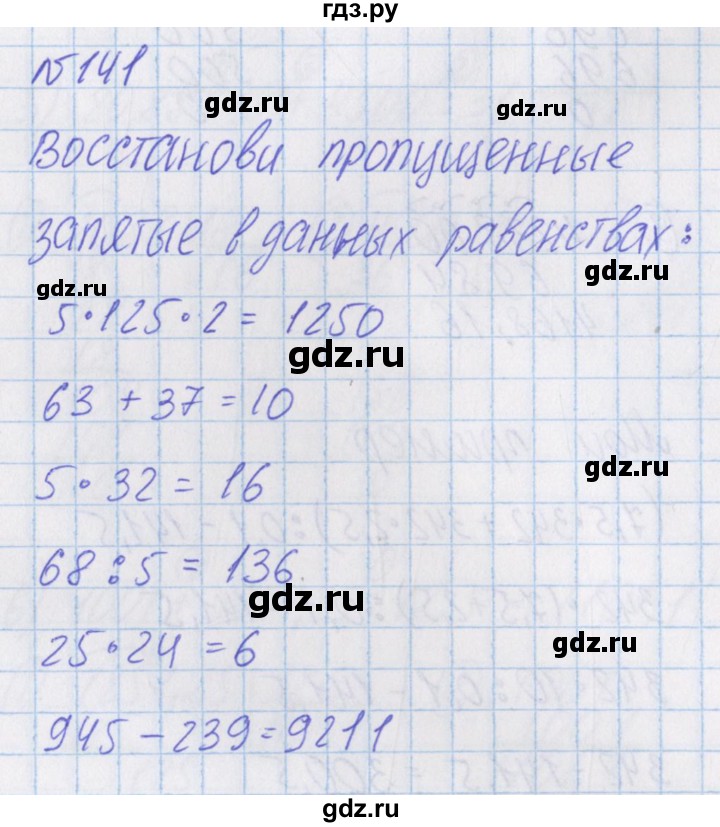 гдз.ру
№141
gdz.ru
gdz.ru
Восстанови пропущенные
запятые в данных равенствах:
gdz.ru
gdz.ru
5·125·2 = 1250
gdz.ru
63 + 37 = 10
gdz.ru
5·32 = 16
68:5 = 136
gdz.ru
gdz.ru
25·24 = 6
945 - 239 = 9211
gdz.ru